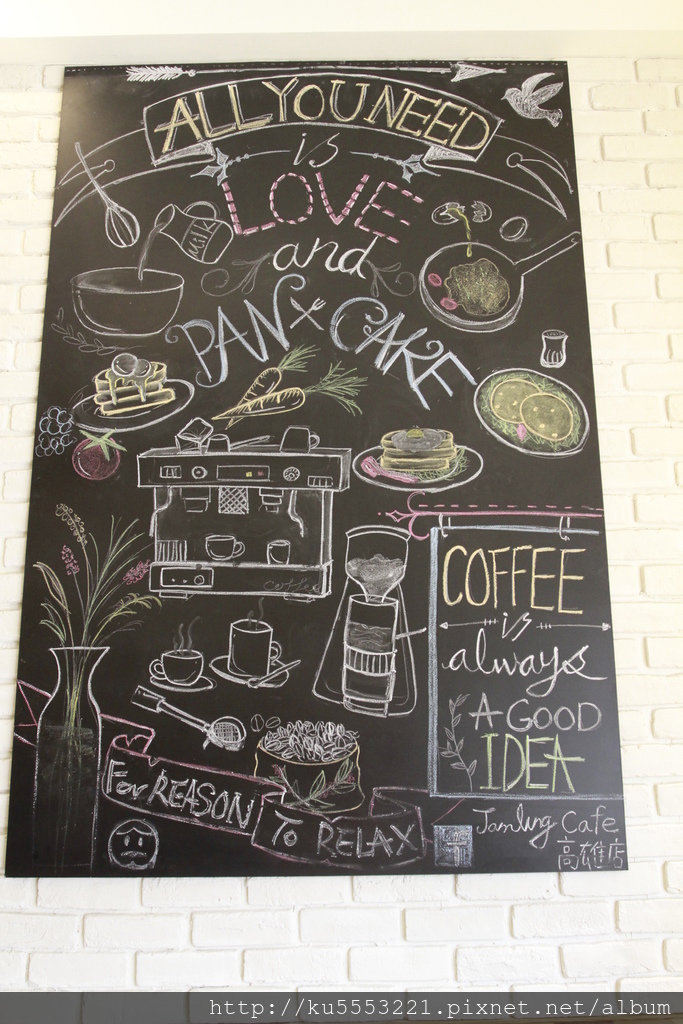 ALL YOU NEED
is
LOVE
and
MILK
PAN CAKE
Coffee
COFFEE
is
always
A GOOD
IDEA
For REASON
To RELAX
Jamling Cafe
高雄店
http://ku5553221.pixnet.net/album